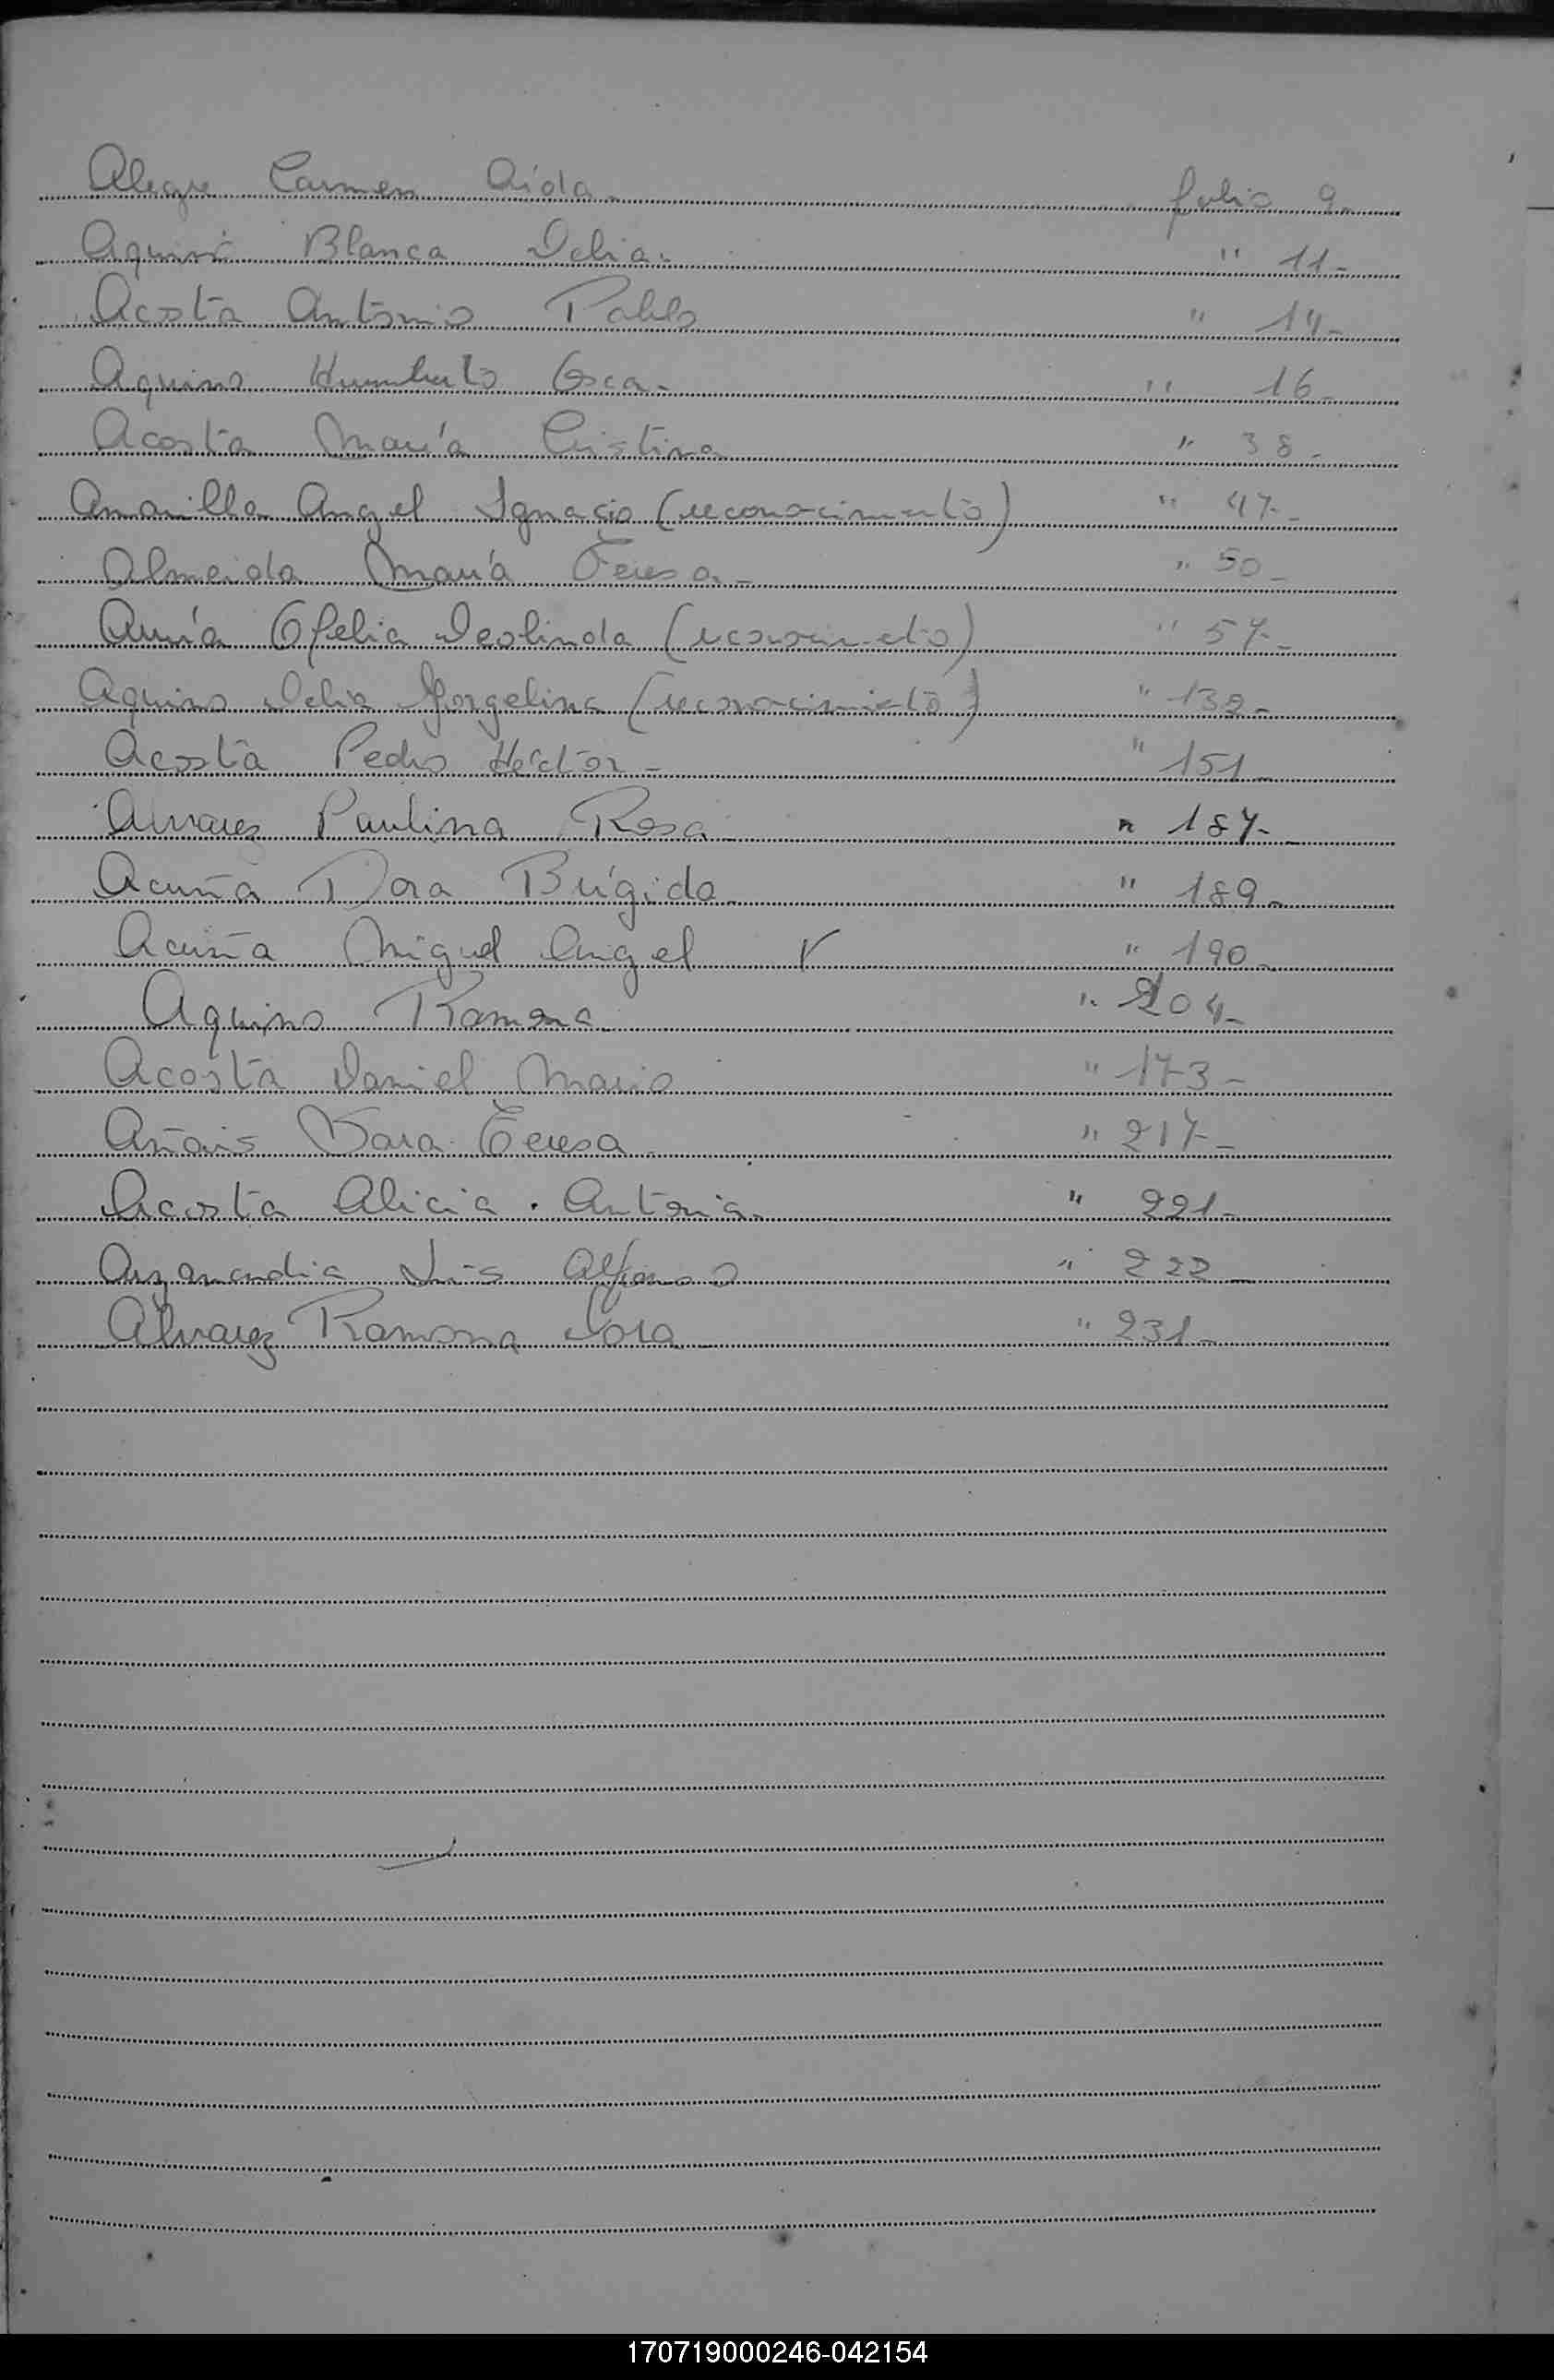 Alegre Carmen Aida folio 9-
Aquino Blanca Delia. " 11-
Acosta Antonio Pablo " 14-
Aquino Humberto Osca- " 16-
Acosta María Cristina " 38-
Amarilla Angel Ignacio (reconocimiento) " 47-
Almeida María Teresa- " 50-
Ofelia Deolinda (reconocimiento) " 57-
Aquino Delia Jorgelina (reconocimiento) " 132-
Acosta Pedro Héctor- " 151-
Alvarez Paulina Rosa " 187-
Acuña Dora Brígida " 189-
Acuña Miguel Angel V " 190-
Aquino Ramona " 204-
Acosta Daniel Mario " 173-
Sara Teresa " 217-
Acosta Alicia. Antonia. " 221-
Luis Alfonso " 222-
Alvarez Ramona " 231-
170719000246-042154